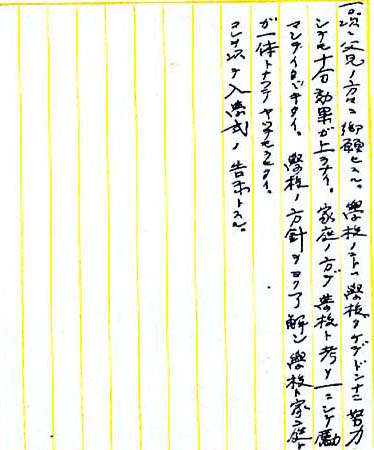 一、次ニ父兄ノ方々ニ御願ヒスル。學校ノコトハ學校ダケデドンナニ努力
シテモ十分効果ガ上ラナイ。家庭ノ方ガ學校ト考ヲ一ニシテ勵
マシテイタダキタイ。學校ノ方針ヲヨク了解シ學校ト家庭ト
ガ一体トナッテヤラセタイ。
コレヲ以テ入學式ノ告示トスル。